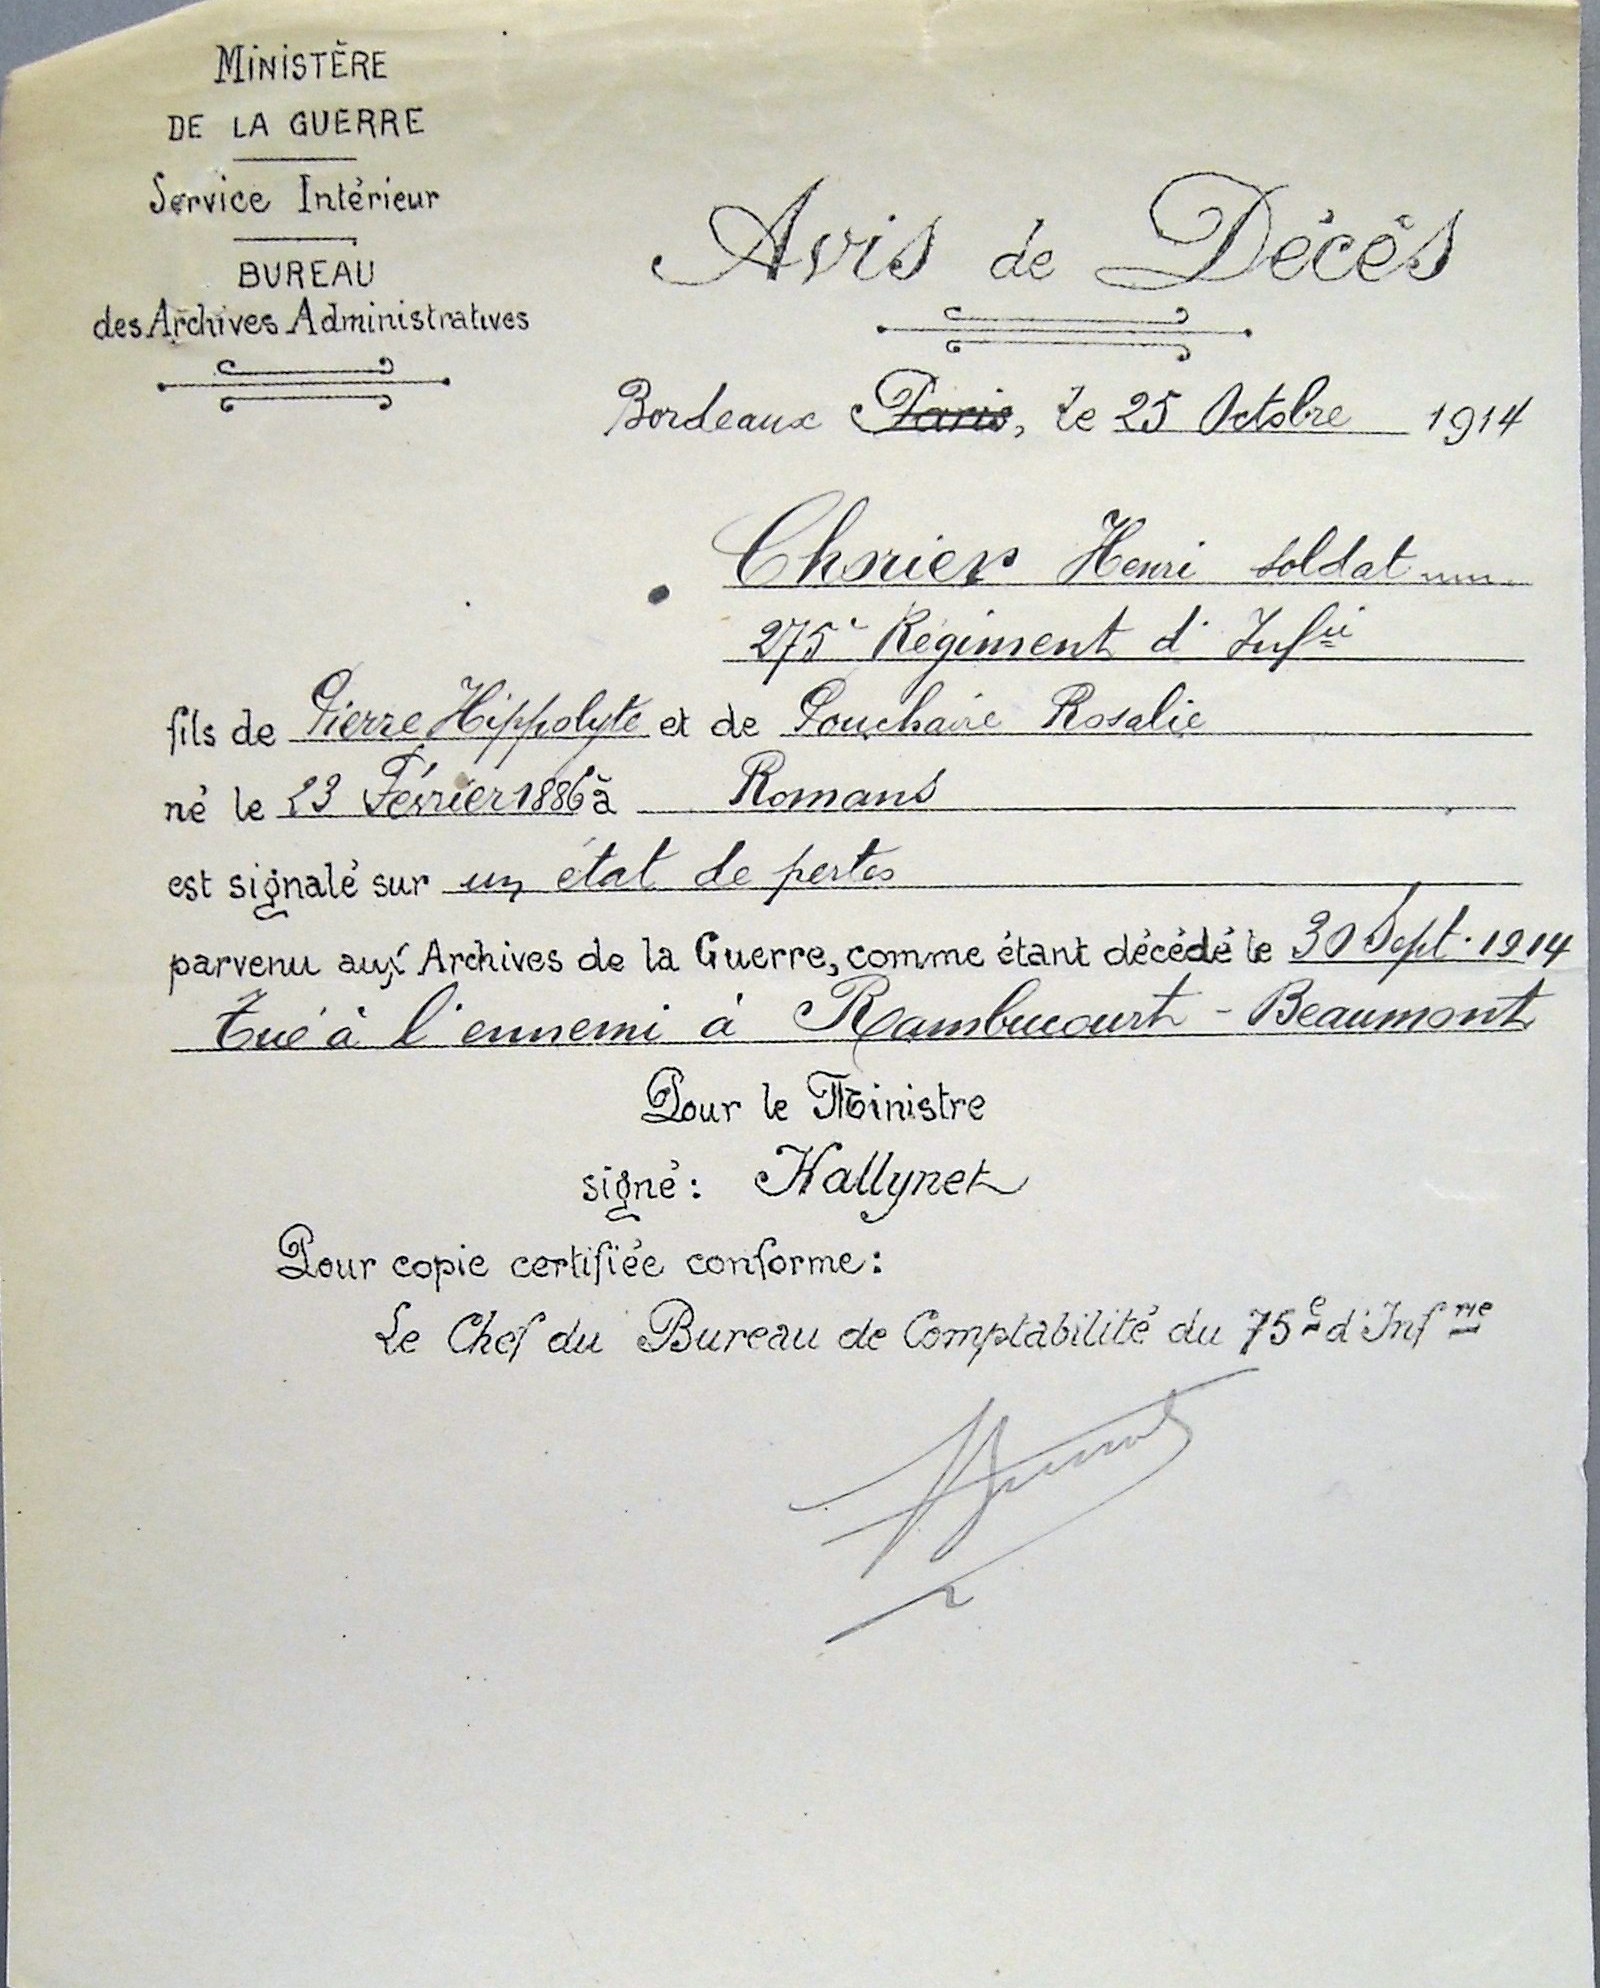 MINISTÈRE
DE LA GUERRE
Service Intérieur
BUREAU
des Archives Administratives
Avis de Décès
Bordeaux Paris, le 25 Octobre 1914
Chorier Henri soldat
275e Régiment d'Infie
fils de Pierre Hippolyte et de Pouchaire Rosalie
né le 23 Février 1886 à Romans
est signalé sur un état de pertes
parvenu aux Archives de la Guerre, comme étant décédé le 30 Sept. 1914
Tué à l'ennemi à Rambucourt - Beaumont
Pour le Ministre
signé: Hallynet
Pour copie certifiée conforme:
Le Chef du Bureau de Comptabilité du 75e d'Infrie